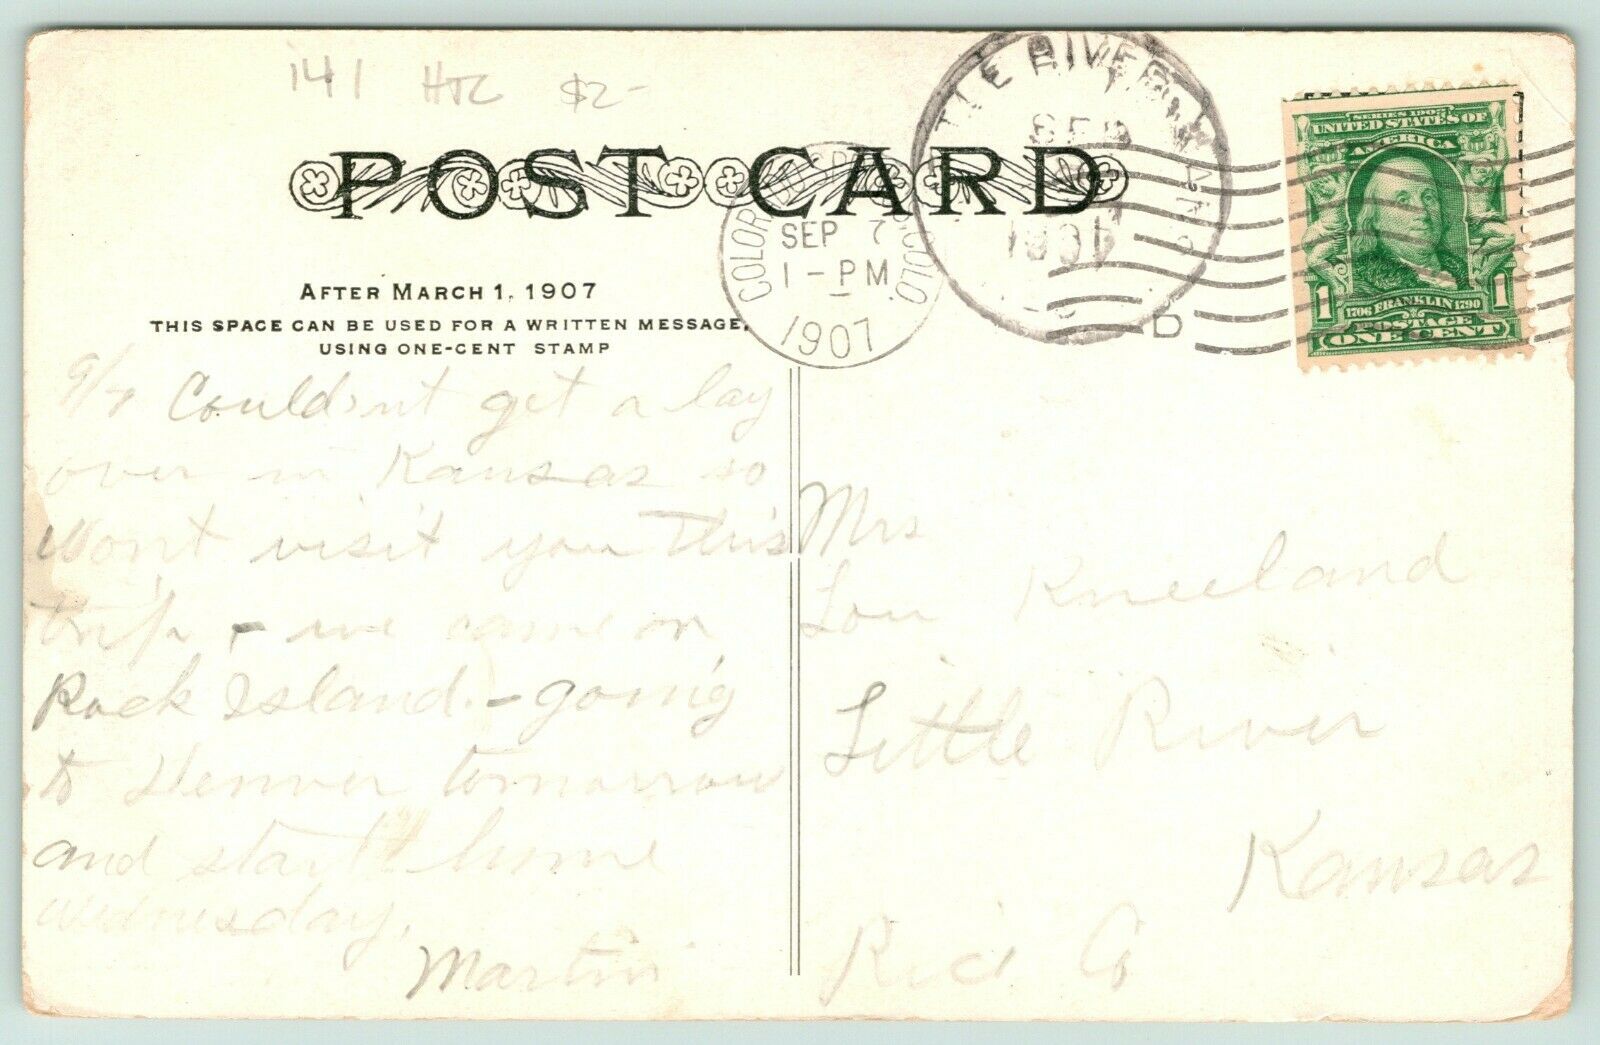 141 HTC $2-
POST CARD
COLORADO SPRINGS, COLO.
SEP 7
1-PM
1907
LITTLE RIVER KANS.
SEP
D
SERIES 1902
UNITED STATES OF
AMERICA
1706 FRANKLIN 1790
POSTAGE
1 ONE CENT 1
AFTER MARCH 1, 1907
THIS SPACE CAN BE USED FOR A WRITTEN MESSAGE,
USING ONE-CENT STAMP
9/7 Couldn't get a lay
over in Kansas so
Wont visit you this
trip - we came on
Rock Island. - going
to Denver tomorrow
and start home
Wednesday.
Martin
Mrs
Lou Kneeland
Little River
Kansas
Rice Co